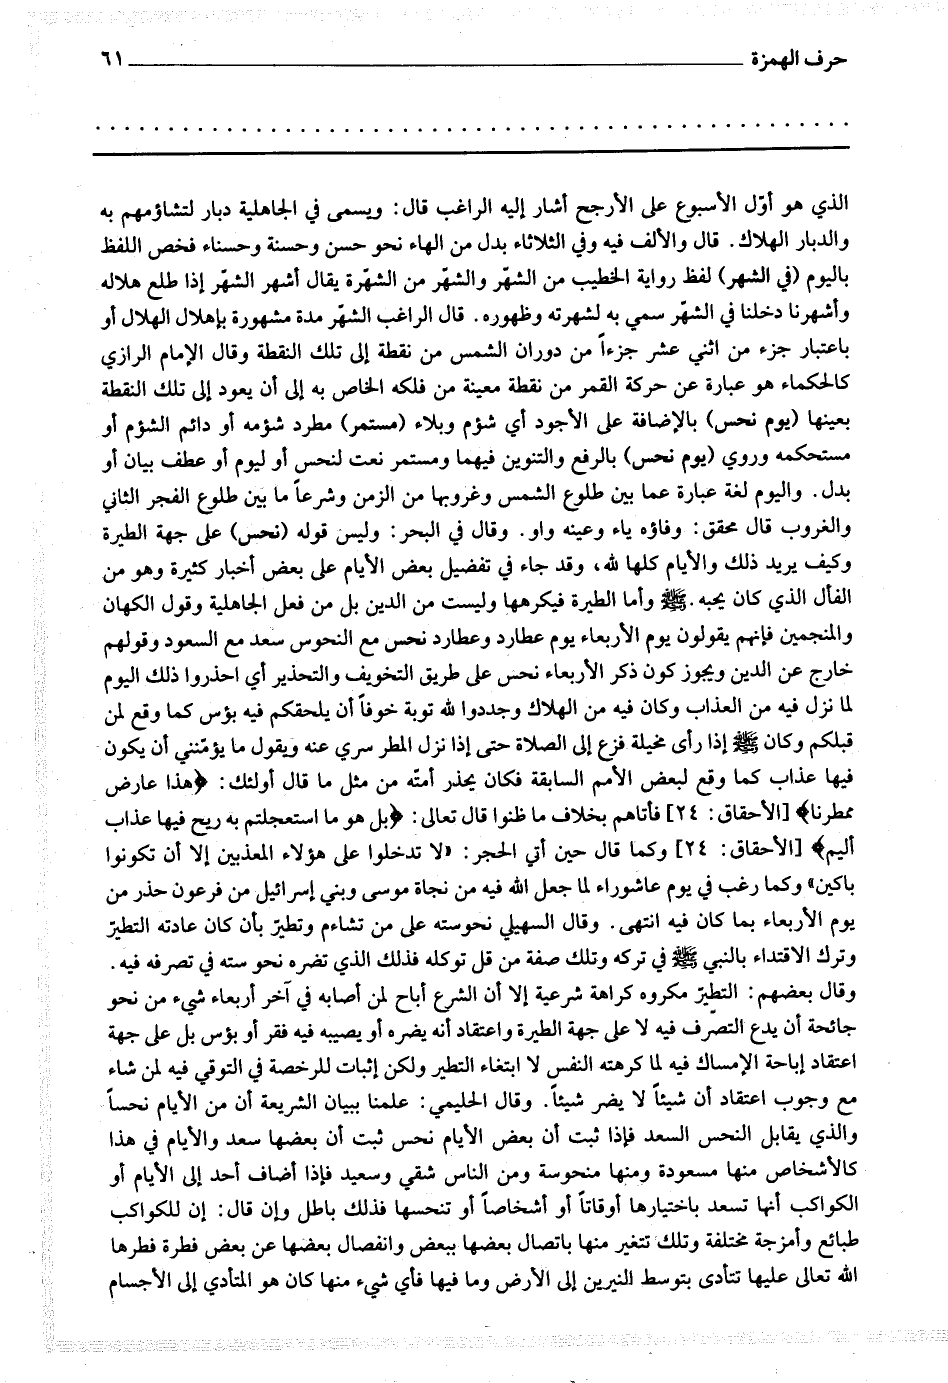 حرف الهمزة ٦١
الذي هو أوّل الأسبوع على الأرجح أشار إليه الراغب قال: ويسمى في الجاهلية دبار لتشاؤمهم به
والدبار الهلاك. قال والألف فيه وفي الثلاثاء بدل من الهاء نحو حسن وحسنة وحسناء فخص اللفظ
باليوم (في الشهر) لفظ رواية الخطيب من الشهّر والشهّر من الشهّرة يقال أشهر الشهّر إذا طلع هلاله
وأشهرنا دخلنا في الشهّر سمي به لشهرته وظهوره. قال الراغب الشهّر مدة مشهورة بإهلال الهلال أو
باعتبار جزء من اثني عشر جزءاً من دوران الشمس من نقطة إلى تلك النقطة وقال الإمام الرازي
كالحكماء هو عبارة عن حركة القمر من نقطة معينة من فلكه الخاص به إلى أن يعود إلى تلك النقطة
بعينها (يوم نحس) بالإضافة على الأجود أي شؤم وبلاء (مستمر) مطرد شؤمه أو دائم الشؤم أو
مستحكمه وروي (يوم نحس) بالرفع والتنوين فيهما ومستمر نعت لنحس أو ليوم أو عطف بيان أو
بدل. واليوم لغة عبارة عما بين طلوع الشمس وغروبها من الزمن وشرعاً ما بين طلوع الفجر الثاني
والغروب قال محقق: وفاؤه ياء وعينه واو. وقال في البحر: وليس قوله (نحس) على جهة الطيرة
وكيف يريد ذلك والأيام كلها لله، وقد جاء في تفضيل بعض الأيام على بعض أخبار كثيرة وهو من
الفأل الذي كان يحبه.ﷺ وأما الطيرة فيكرهها وليست من الدين بل من فعل الجاهلية وقول الكهان
والمنجمين فإنهم يقولون يوم الأربعاء يوم عطارد وعطارد نحس مع النحوس سعد مع السعود وقولهم
خارج عن الدين ويجوز كون ذكر الأربعاء نحس على طريق التخويف والتحذير أي احذروا ذلك اليوم
لما نزل فيه من العذاب وكان فيه من الهلاك وجددوا لله توبة خوفاً أن يلحقكم فيه بؤس كما وقع لمن
قبلكم وكان ﷺ إذا رأى مخيلة فزع إلى الصلاة حتى إذا نزل المطر سري عنه ويقول ما يؤمّنني أن يكون
فيها عذاب كما وقع لبعض الأمم السابقة فكان يحذر أمتّه من مثل ما قال أولئك: ﴿هذا عارض
ممطرنا﴾ [الأحقاق: ٢٤] فأتاهم بخلاف ما ظنوا قال تعالى: ﴿بل هو ما استعجلتم به ريح فيها عذاب
أليم﴾ [الأحقاق: ٢٤] وكما قال حين أتي الحجر: «لا تدخلوا على هؤلاء المعذبين إلا أن تكونوا
باكين» وكما رغب في يوم عاشوراء لما جعل الله فيه من نجاة موسى وبني إسرائيل من فرعون حذر من
يوم الأربعاء بما كان فيه انتهى. وقال السهيلي نحوسته على من تشاءم وتطيرّ بأن كان عادته التطيرّ
وترك الاقتداء بالنبي ﷺ في تركه وتلك صفة من قل توكله فذلك الذي تضره نحو سته في تصرفه فيه.
وقال بعضهم: التطيرّ مكروه كراهة شرعية إلا أن الشرع أباح لمن أصابه في آخر أربعاء شيء من نحو
جائحة أن يدع التصرّف فيه لا على جهة الطيرة واعتقاد أنه يضره أو يصيبه فيه فقر أو بؤس بل على جهة
اعتقاد إباحة الإمساك فيه لما كرهته النفس لا ابتغاء التطير ولكن إثبات للرخصة في التوقي فيه لمن شاء
مع وجوب اعتقاد أن شيئاً لا يضر شيئاً. وقال الحليمي: علمنا ببيان الشريعة أن من الأيام نحساً
والذي يقابل النحس السعد فإذا ثبت أن بعض الأيام نحس ثبت أن بعضها سعد والأيام في هذا
كالأشخاص منها مسعودة ومنها منحوسة ومن الناس شقي وسعيد فإذا أضاف أحد إلى الأيام أو
الكواكب أنها تسعد باختيارها أوقاتاً أو أشخاصاً أو تنحسها فذلك باطل وإن قال: إن للكواكب
طبائع وأمزجة مختلفة وتلك تتغير منها باتصال بعضها ببعض وانفصال بعضها عن بعض فطرة فطرها
الله تعالى عليها تتأدى بتوسط النيرين إلى الأرض وما فيها فأي شيء منها كان هو المتأدي إلى الأجسام